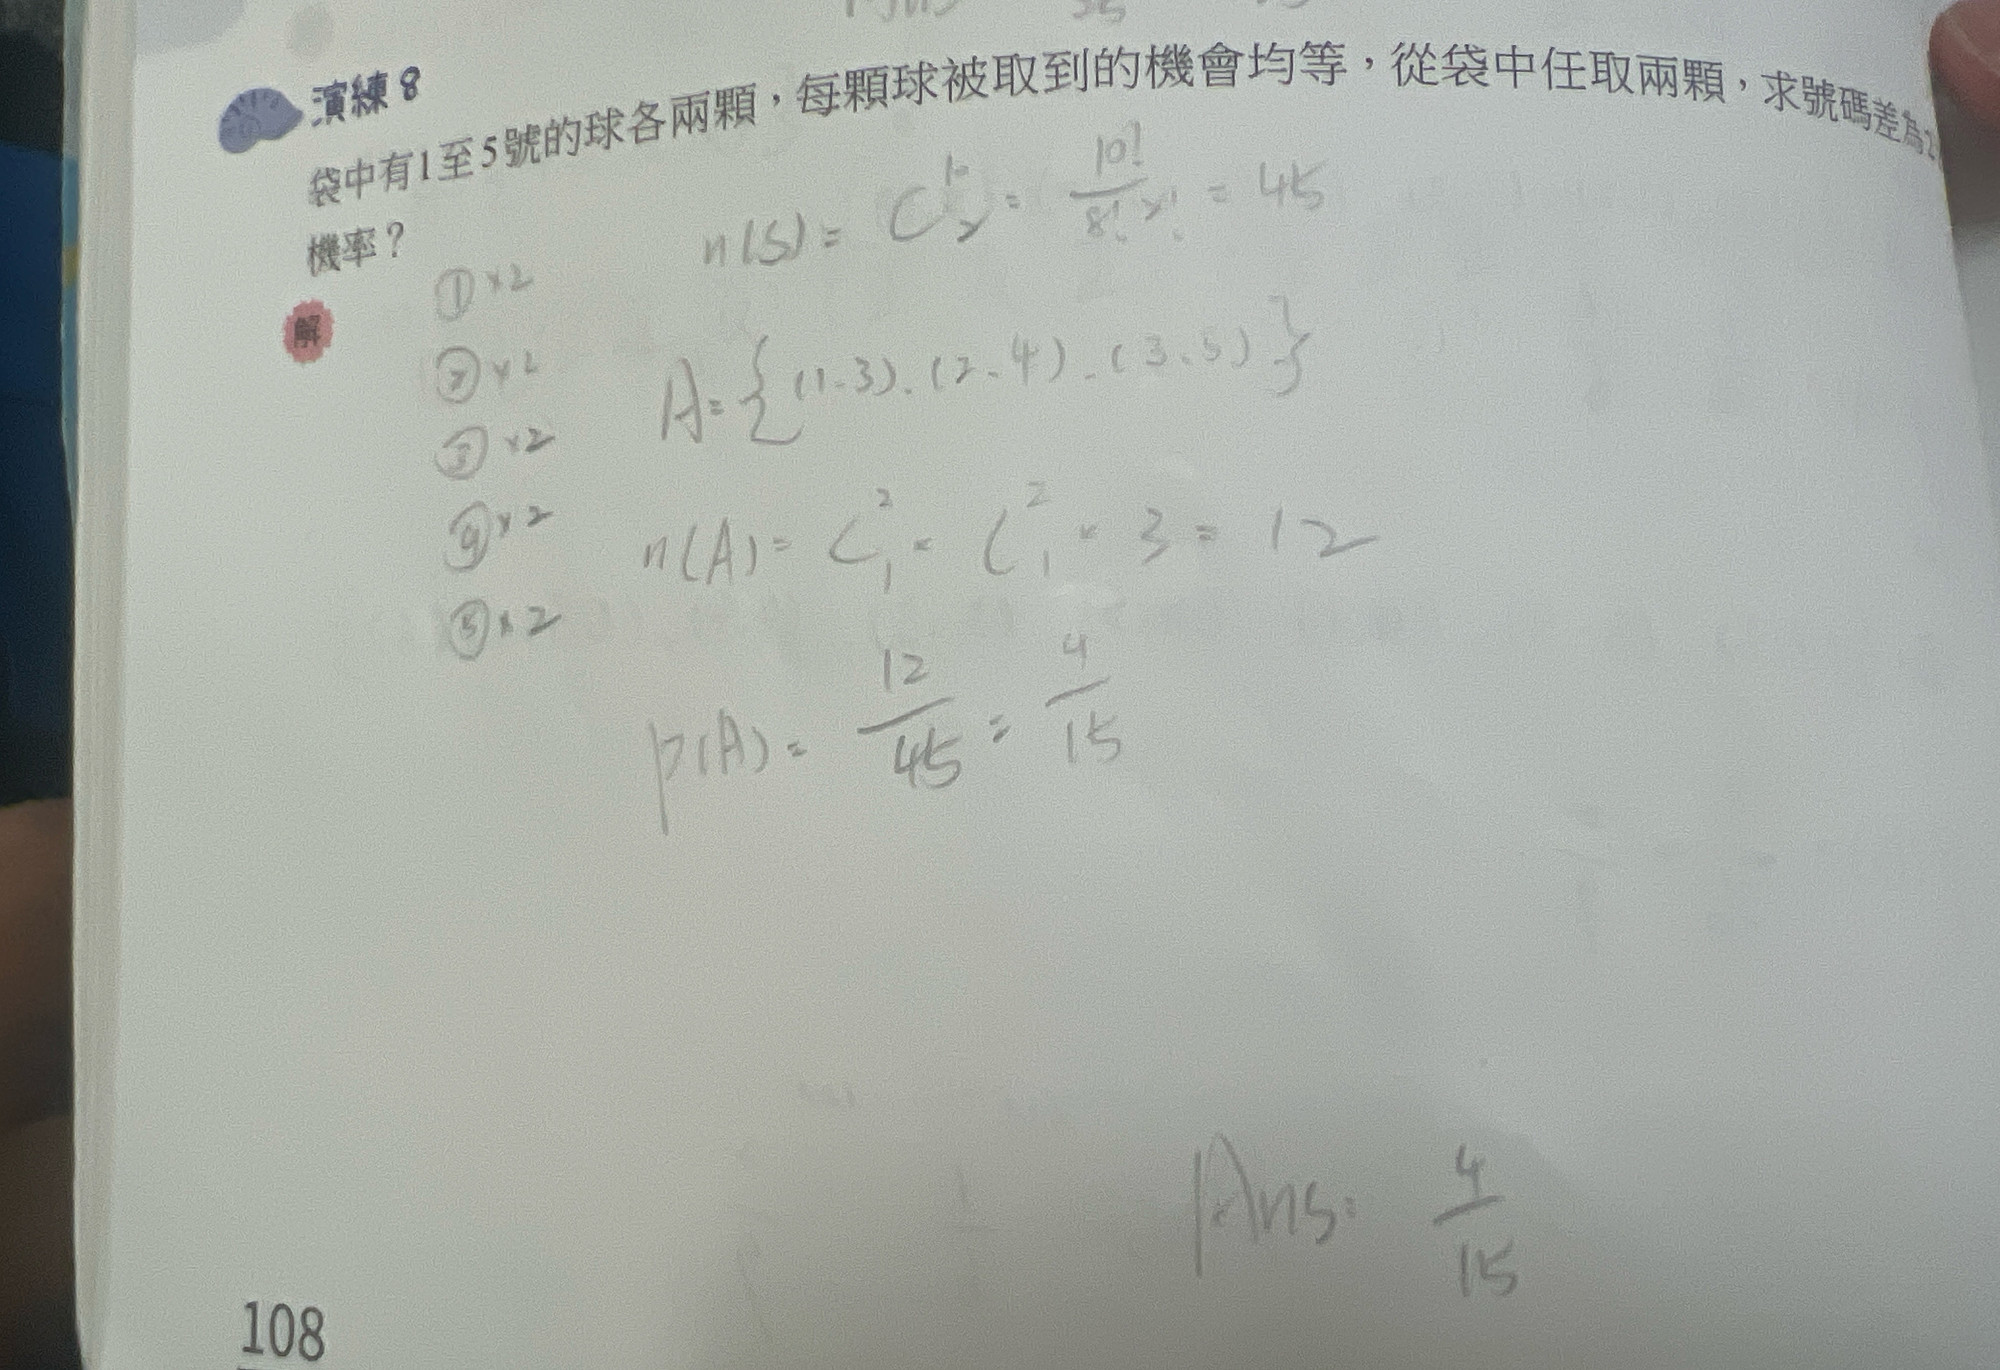 演練 8
袋中有1至5號的球各兩顆，每顆球被取到的機會均等，從袋中任取兩顆，求號碼差為2
機率？
n(S) = C^{10}_2 = 10!/8!2! = 45
解
①×2
②×2
③×2
④×2
⑤×2
A = {(1.3).(2.4).(3.5)}
n(A) = C^2_1 × C^2_1 × 3 = 12
P(A) = 12/45 = 4/15
Ans: 4/15
108